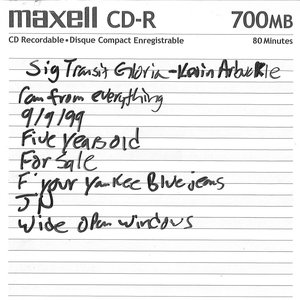 maxell CD-R 700MB
CD Recordable • Disque Compact Enregistrable 80 Minutes
Sig Transit Gloria - Kevin Arbuckle
ran from everything
9/9/99
Five years old
For Sale
F' your yankee Blue jeans
JN
Wide open windows